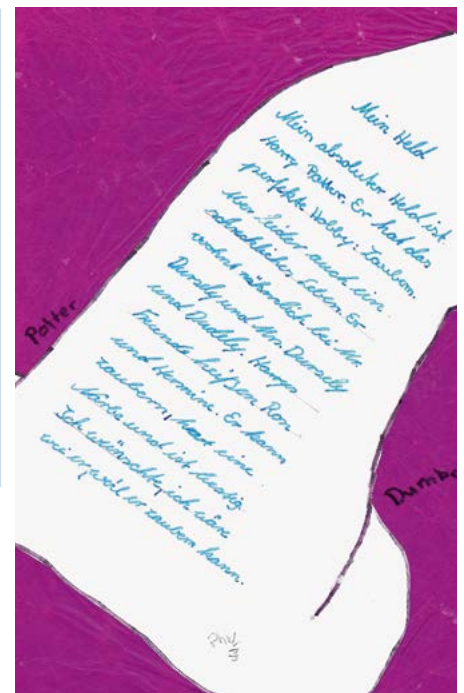 Mein Held
Mein absoluter Held ist
Harry Potter. Er hat das
perfekte Hobby: Zaubern.
Aber leider auch ein
schreckliches Leben. Er
wohnt nähmlich bei Mr.
Dursely und Mrs. Dursely
und Duddly. Harrys
Freunde heißen Ron
und Hermine. Er kann
zaubern, hat eine
Narbe und ist lustig.
Ich wünschte, ich wäre
wie er, weil er zaubern kann.
Potter